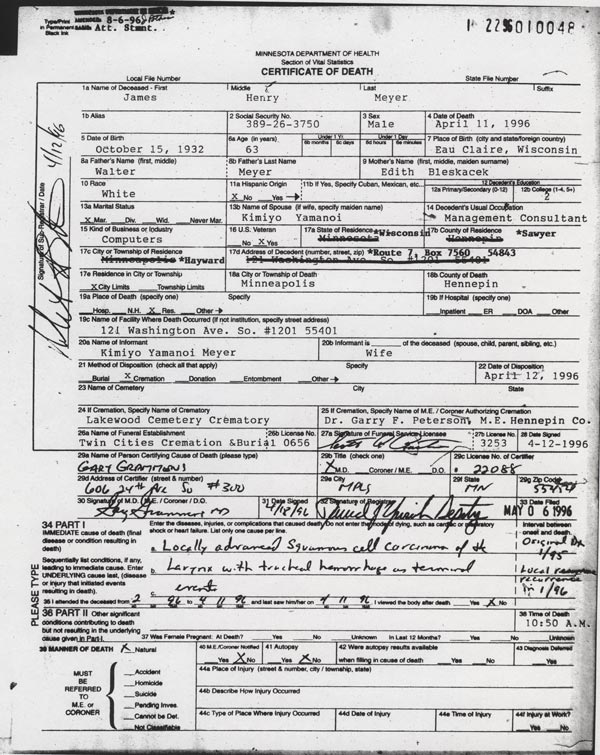 Type/Print in Permanent Black Ink
MINNESOTA DEPARTMENT OF HEALTH
AMENDED 8-6-96
BASIS: Att. Stmt.
010048
MINNESOTA DEPARTMENT OF HEALTH
Section of Vital Statistics
CERTIFICATE OF DEATH
Local File Number State File Number
1a Name of Deceased - First Middle Last Suffix
James Henry Meyer
1b Alias 2 Social Security No. 3 Sex 4 Date of Death
389-26-3750 Male April 11, 1996
5 Date of Birth 6a Age (in years) Under 1 Yr. 6b months 6c days Under 1 Day 6d hours 6e minutes 7 Place of Birth (city and state/foreign country)
October 15, 1932 63 Eau Claire, Wisconsin
8a Father's Name (first, middle) 8b Father's Last Name 9 Mother's Name (first, middle, maiden surname)
Walter Meyer Edith Bleskacek
10 Race 11a Hispanic Origin 11b If Yes, Specify Cuban, Mexican, etc. 12 Decedent's Education 12a Primary/Secondary (0-12) 12b College (1-4, 5+)
White X No Yes → 2
13a Marital Status 13b Name of Spouse (if wife, specify maiden name) 14 Decedent's Usual Occupation
X Mar. Div. Wid. Never Mar. Kimiyo Yamanoi Management Consultant
15 Kind of Business or Industry 16 U.S. Veteran 17a State of Residence *Wisconsin 17b County of Residence *Sawyer
Computers No X Yes Minnesota Hennepin
17c City or Township of Residence 17d Address of Decedent (number, street, zip) *Route 7, Box 7560 54843
Minneapolis *Hayward 121 Washington Ave. So. #1201 55401
17e Residence in City or Township 18a City or Township of Death 18b County of Death
X City Limits Township Limits Minneapolis Hennepin
19a Place of Death (specify one) Specify 19b If Hospital (specify one)
Hosp. N.H. X Res. Other → Inpatient ER DOA Other
19c Name of Facility Where Death Occurred (If not institution, specify street address)
121 Washington Ave. So. #1201 55401
20a Name of Informant 20b Informant is of the deceased (spouse, child, parent, sibling, etc.)
Kimiyo Yamanoi Meyer Wife
21 Method of Disposition (check all that apply) Specify 22 Date of Disposition
Burial X Cremation Donation Entombment Other → April 12, 1996
23 Name of Cemetery City State
24 If Cremation, Specify Name of Crematory 25 If Cremation, Specify Name of M.E. / Coroner Authorizing Cremation
Lakewood Cemetery Crematory Dr. Garry F. Peterson, M.E. Hennepin Co.
26a Name of Funeral Establishment 26b License No. 27a Signature of Funeral Service Licensee 27b License No. 28 Date Signed
Twin Cities Cremation &Burial 0656 3253 4-12-1996
29a Name of Person Certifying Cause of Death (please type) 29b Title (check one) 29c License No. of Certifier
X M.D. Coroner / M.E. D.O. # 22088
29d Address of Certifier (street & number) 29e City 29f State 29g Zip Code
606 24th Ave So #300 MPLS MN
30 Signature of M.D. / M.E. / Coroner / D.O. 31 Date Signed 32 Signature of Registrar 33 Date Filed
4/18/96 MAY 06 1996
34 PART I
IMMEDIATE cause of death (final disease or condition resulting in death)
Enter the diseases, injuries, or complications that caused death. Do not enter the mode of dying, such as cardiac or respiratory shock or heart failure. List only one cause per line.
Interval between onset and death.
a. Locally advanced Squamous cell carcinoma of the Original Dx 1/95
Sequentially list conditions, if any, leading to immediate cause. Enter UNDERLYING cause last, (disease or injury that initiated events resulting in death).
b. Larynx with tracheal hemorrhage as terminal Local recurrence in 1/96
c. event
PLEASE TYPE
35 I attended the deceased from 2 96 to 4 11 96 and last saw him/her on 4 11 96 I viewed the body after death Yes X No
36 PART II Other significant conditions contributing to death but not resulting in the underlying cause given in Part I.
38 Time of Death
10:50 A.M.
37 Was Female Pregnant: At Death? Yes No Unknown In Last 12 Months? Yes No Unknown
39 MANNER OF DEATH X Natural
40 M.E./Coroner Notified 41 Autopsy 42 Were autopsy results available when filling in cause of death 43 Diagnosis Deferred
Yes X No Yes X No Yes No
MUST BE REFERRED TO M.E. or CORONER
Accident
Homicide
Suicide
Pending Inves.
Cannot be Det.
Not Classifiable
44a Place of Injury (street & number, city / township, state)
44b Describe How Injury Occurred
44c Type of Place Where Injury Occurred 44d Date of Injury 44e Time of Injury 44f Injury at Work?
Yes No
Signature of Sub-Registrar / Date
4/12/96